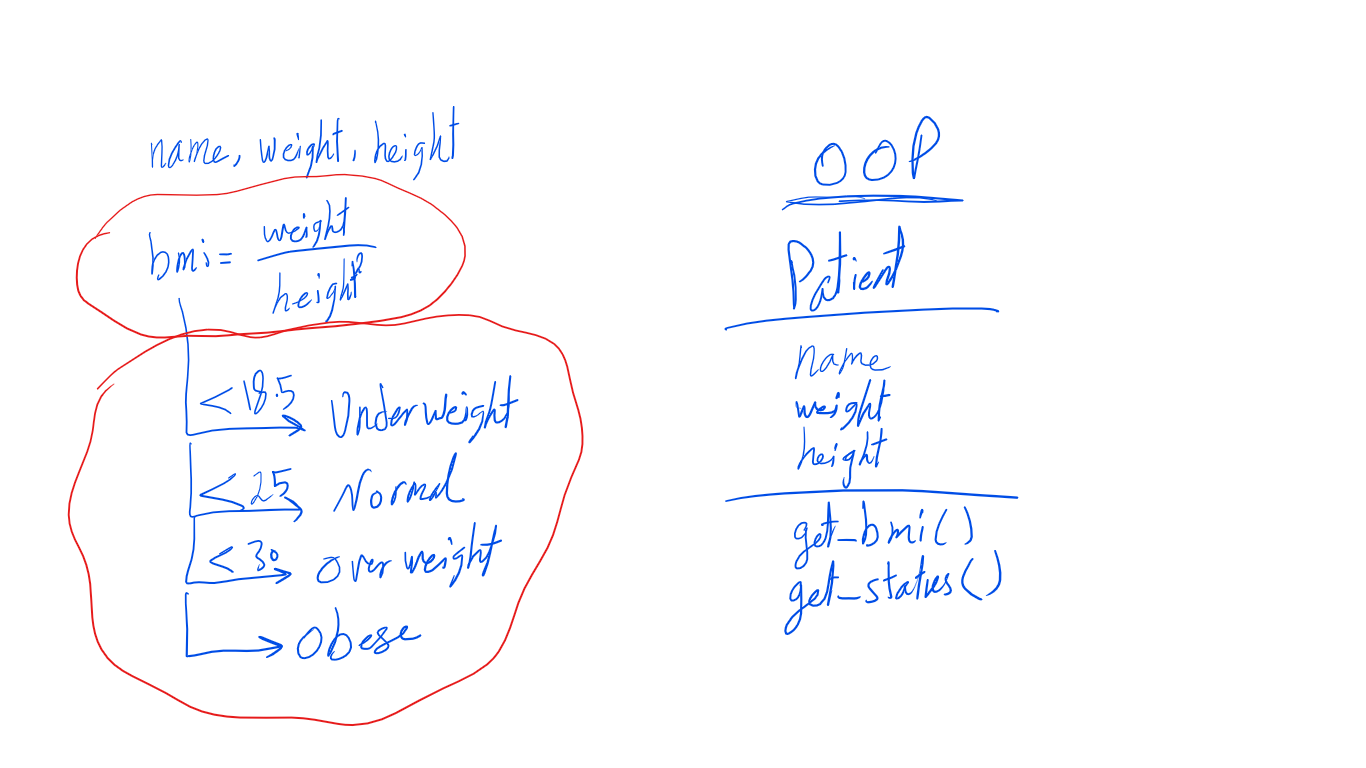 name, weight, height
bmi = weight
height²
<18.5 Underweight
<25 Normal
<30 overweight
Obese
OOP
Patient
name
weight
height
get_bmi()
get_status()